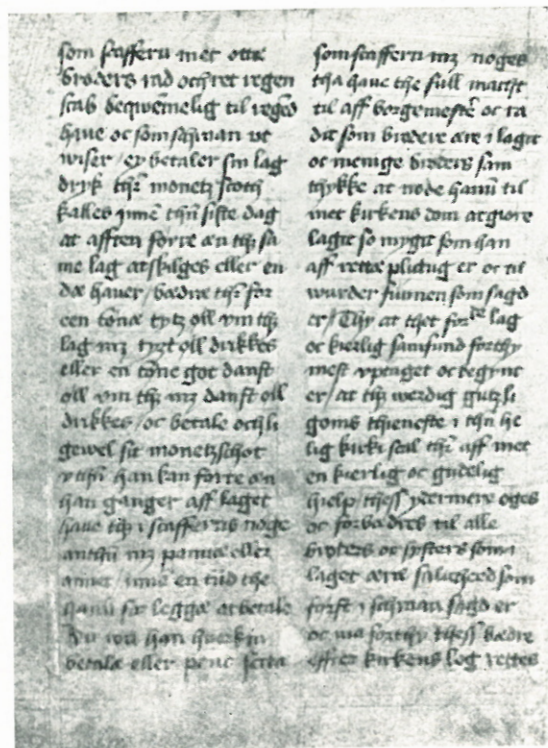 som scafferu met otte
brøders rad och ret regen
scab beqwemelig til reghed
haue oc som schwan vt
wiser / ey betaler sin lag
dryk thz monetz scoth
kalles jnnē thn siste dag
at afften førre æn thz sa
me lag atskilges eller en
dæ hauer / bædræ thz for
een tønæ tytz oll vm thz
lag mz tyzt oll drikkes
eller en tøne got danst
oll vm thz mz danst oll
drikkes / oc betale och li
gewel sit monetzschot
vthn han kan førre æn
han ganger aff laget
haue thz i scafferns noge
anthn mz pantæ eller
annet / innē en tiid the
hanū for leggæ at betale
Nu wil han hwerkin
betale eller pent setta
som scafferu mz noges
tha haue the full macht
til aff borgemestē oc ra
dit som brødere ære i lagit
oc menige brøders sam
thykke at node hanū til
met kirkens dom at giøre
lagit so mygit som han
aff rettæ plictug er oc til
wurder funnen som sagd
er / Thy at thet forde lag
oc kierlig samfund forthy
mest vptaget oc begynt
er / at thz werdug gutzli
goms thieneste i thn he
lig kirki scal thz aff met
en kierlig oc gudelig
hielp / thess ydermere øges
oc forbædres til alle
brøders oc systers som i
laget æræ saligheed som
først i schwan sagd er
oc ma forthy thess bædre
effter kirkens log rettes